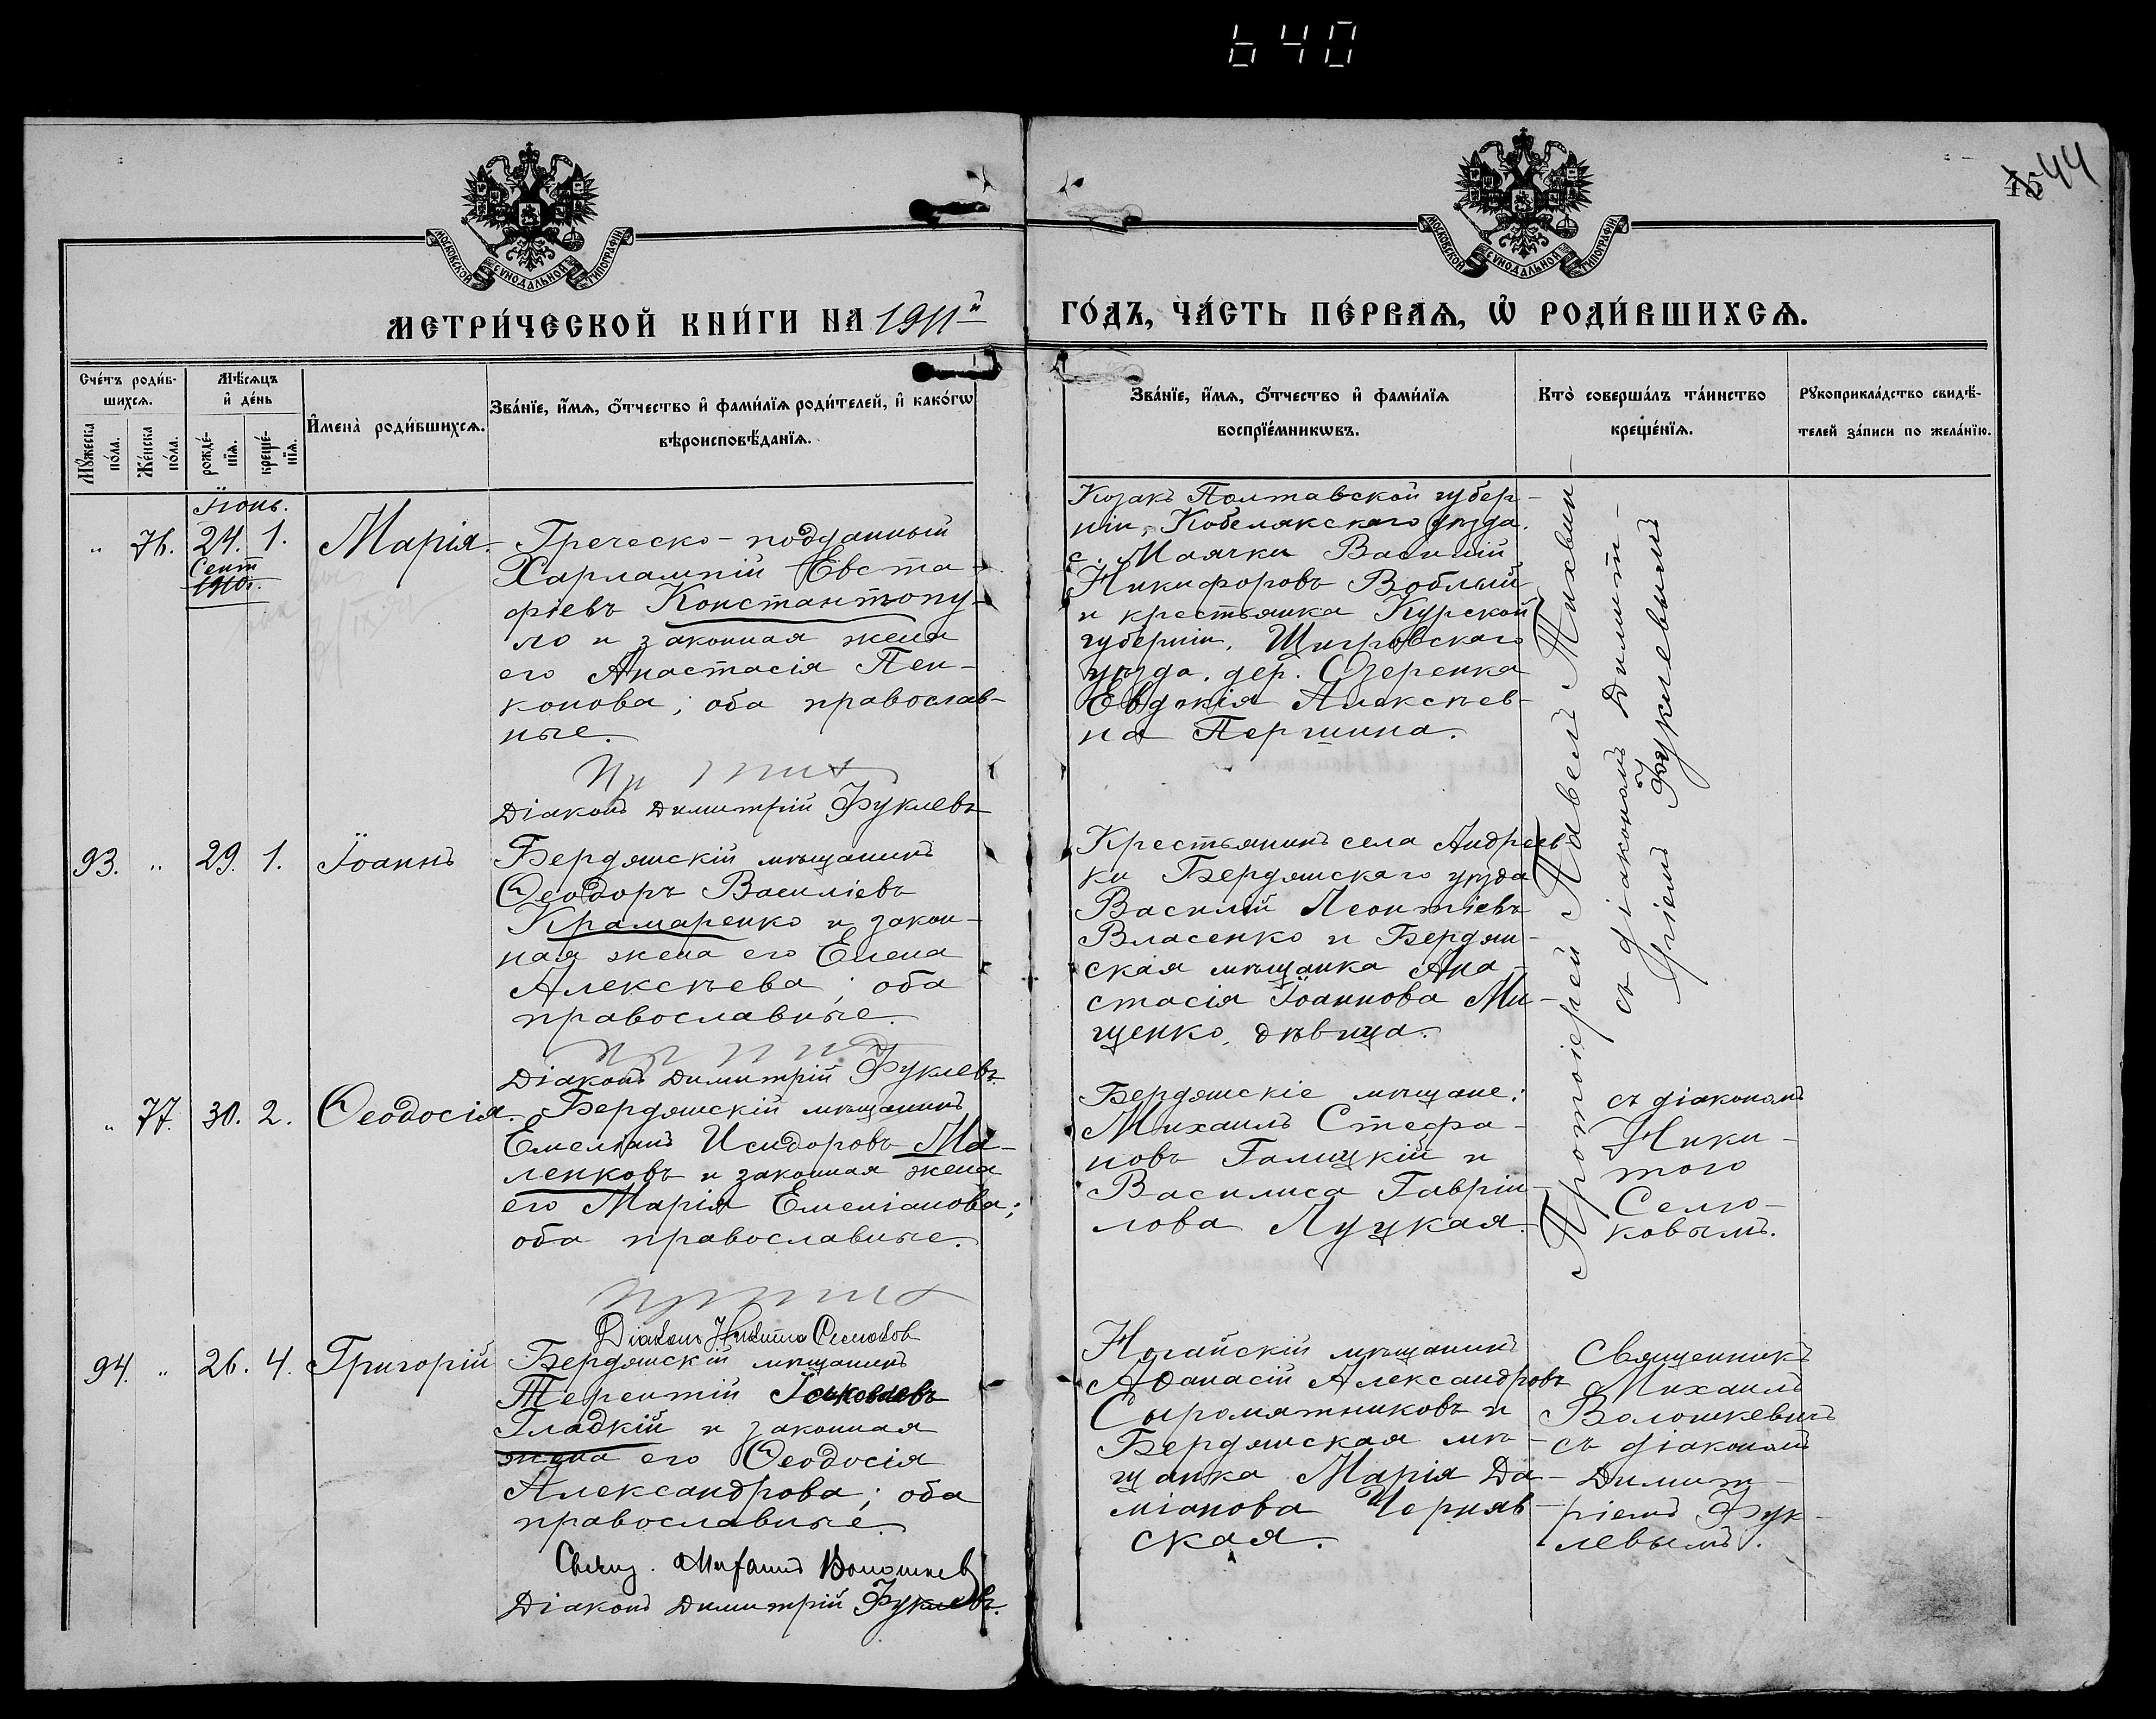 640
44
МОСКОВСКОЙ СѴНОДАЛЬНОЙ ТИПОГРАФІИ
МОСКОВСКОЙ СѴНОДАЛЬНОЙ ТИПОГРАФІИ
МЕТРИ́ЧЕСКОЙ КНИ́ГИ НА 1911й
ГО́ДЪ, ЧА́СТЬ ПЕ́РВАѦ, Ѡ҆ РОДИ́ВШИХСѦ.
Сче́тъ роди́в-
шихсѧ.
Мꙋ́жеска
по́ла.
Же́нска
по́ла.
Мѣ́сѧцъ
и҆ де́нь
рожде́-
нїѧ.
креще́-
нїѧ.
И҆мена̀ роди́вшихсѧ.
Зва́нїе, и҆́мѧ, ѻ҆́тчество и҆ фами́лїѧ роди́телей, и҆ како́гѡ
вѣроисповѣ́данїѧ.
Зва́нїе, и҆́мѧ, ѻ҆́тчество и҆ фами́лїѧ
воспрїе́мникѡвъ.
Кто̀ соверша́лъ та́инство
креще́нїѧ.
Рꙋкоприкла́дство свидѣ́-
телей за́писи по жела́нїю.
Іюнь.
" 76. 24. 1. Марія.
Сент
1910г.
Греческо-подданный
Харлампій Евста-
фіевъ Константопу-
ло и законная жена
его Анастасія Пен-
конова; оба православ-
ные.
Діаконъ Димитрій Фуклевъ
Козакъ Полтавской губер-
ніи, Кобелякскаго уѣзда.
с. Маячки Василій
Никифоровъ Воблый
и крестьянка Курской
губерніи, Щигровскаго
уѣзда. дер. Озеренка
Евдокія Алексѣев-
на Першина.
Протоіерей Павелъ
съ діакономъ Димит-
ріемъ Фуклевымъ
93. " 29. 1. Іоаннъ
Бердянскій мѣщанинъ
Ѳеодоръ Василіевъ
Крамаренко и закон-
ная жена его Елена
Алексѣева; оба
православные.
Діаконъ Димитрій Фуклевъ.
Крестьянинъ села Андреев
ки Бердянскаго уѣзда
Василій Леонтіевъ
Власенко и Бердян-
ская мѣщанка Ана-
стасія Іоаннова Ми-
щенко, дѣвица.
" 77. 30. 2. Ѳеодосія.
Бердянскій мѣщанинъ
Емеліанъ Исидоровъ Ма-
ленковъ и законная жена
его Марія Емеліанова;
оба православные.
Діаконъ Никита Селюков
Бердянскіе мѣщане:
Михаилъ Стефа-
новъ Галицкій и
Василиса Гавріи-
лова Луцкая.
съ діакономъ
Ники-
тою
Селю-
ковымъ.
94. " 26. 4. Григорій
Бердянскій мѣщанинъ
Терентій
Гладкій и законная
жена его Ѳеодосія
Александрова; оба
православные.
Свящ. Михаилъ Волошкев
Діаконъ Димитрій Фуклевъ.
Ногайскій мѣщанинъ
Аѳанасій Александровъ
Сыромятниковъ и
Бердянская мѣ-
щанка Марія Да-
міанова Черняв-
ская.
Священникъ
Михаилъ
Волошкевичъ
съ діакономъ
Димит-
ріемъ Фук-
левымъ.